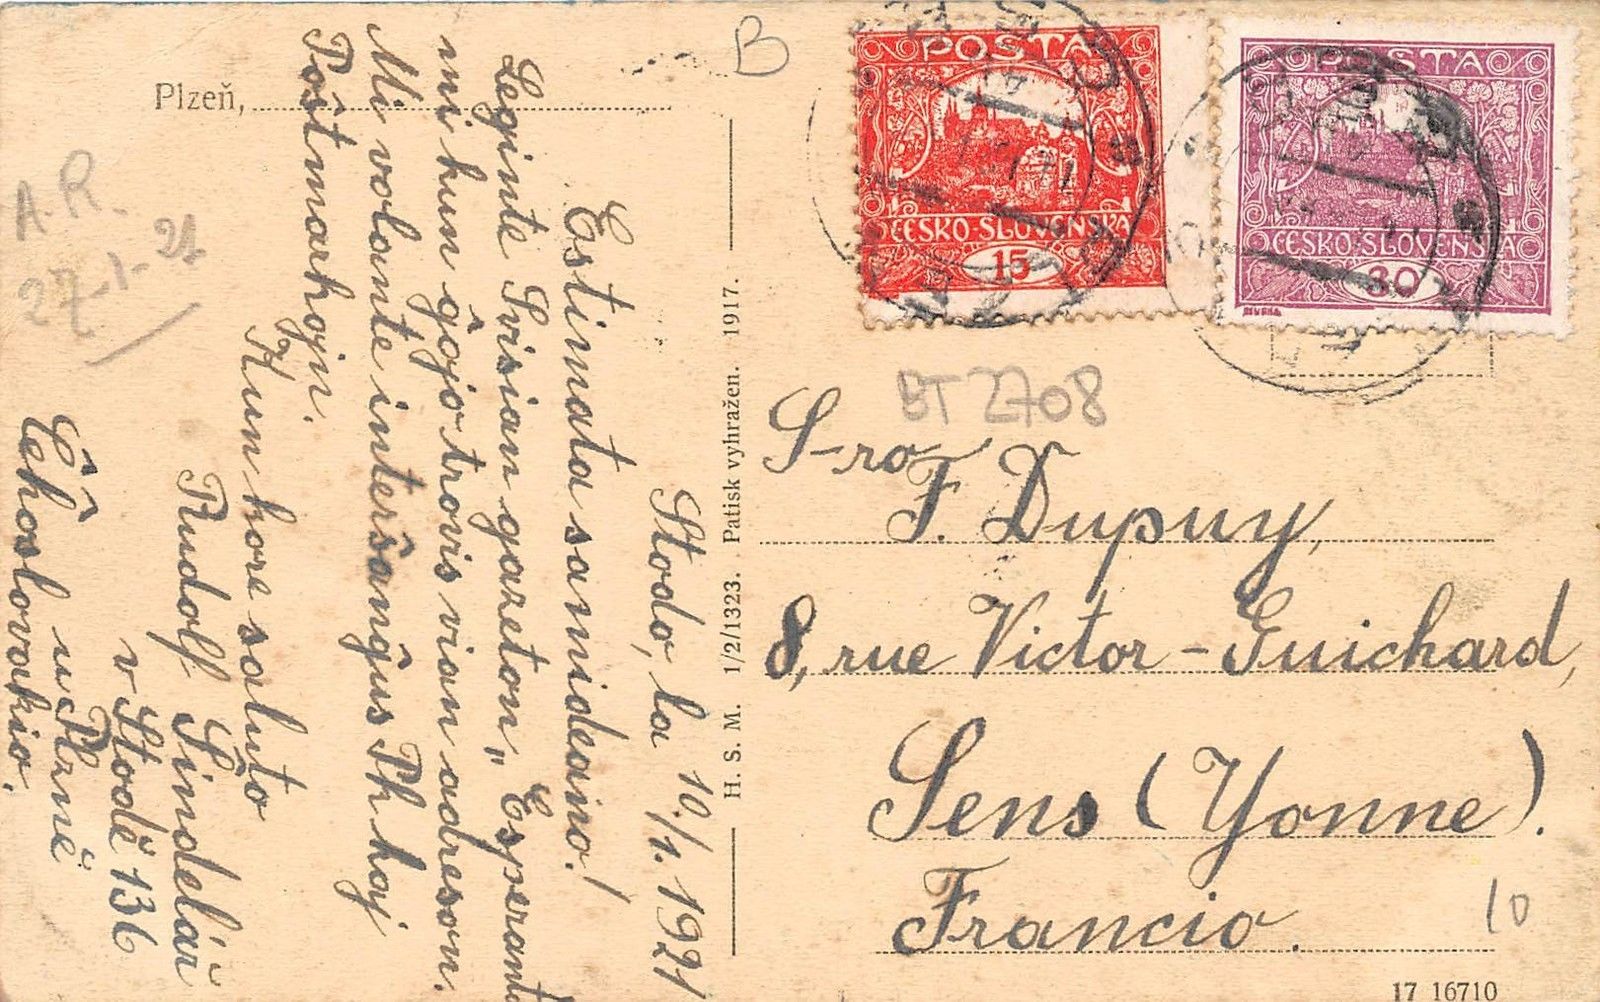 Plzeň,
B
A. R.
27-1-21
Stodo, la 10./1. 1921
Estimata samideano!
Leginte Svisian gazeton „Esperanto
mi kun ĝojo trovis vian adreson.
Mi volante interŝanĝus Ph kaj
Poŝtmarkojn.
Kun kore saluto
Rudolf Šindelář
v Stodě 136
u Plzně
Ĉeĥoslovakio.
H. S. M. 1/2/1323. Patisk vyhražen. 1917.
POŠTA
ČESKO-SLOVENSKÁ
15
POŠTA
ČESKO-SLOVENSKÁ
30
BT 2708
S-ro
F. Dupuy,
8, rue Victor-Guichard,
Sens (Yonne).
Francio.
10
17 16710